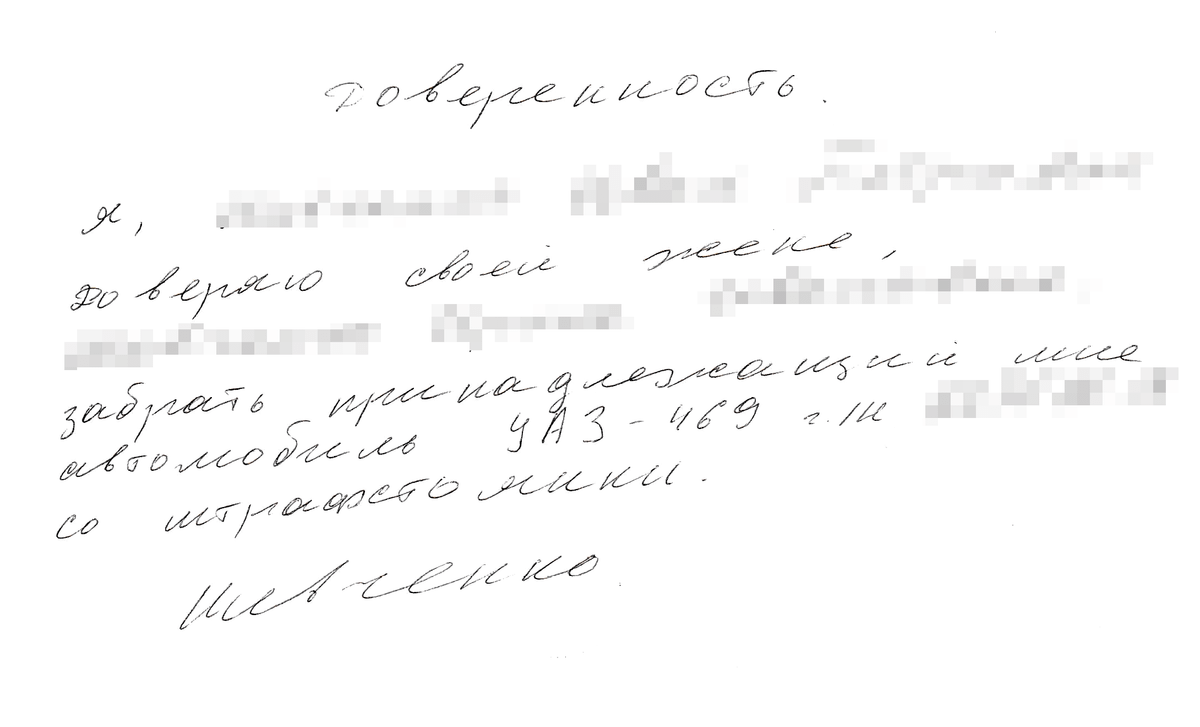 Доверенность.
Я,
доверяю своей жене,
забрать принадлежащий мне
автомобиль УАЗ-469 г./н
со штрафстоянки.
Шевченко